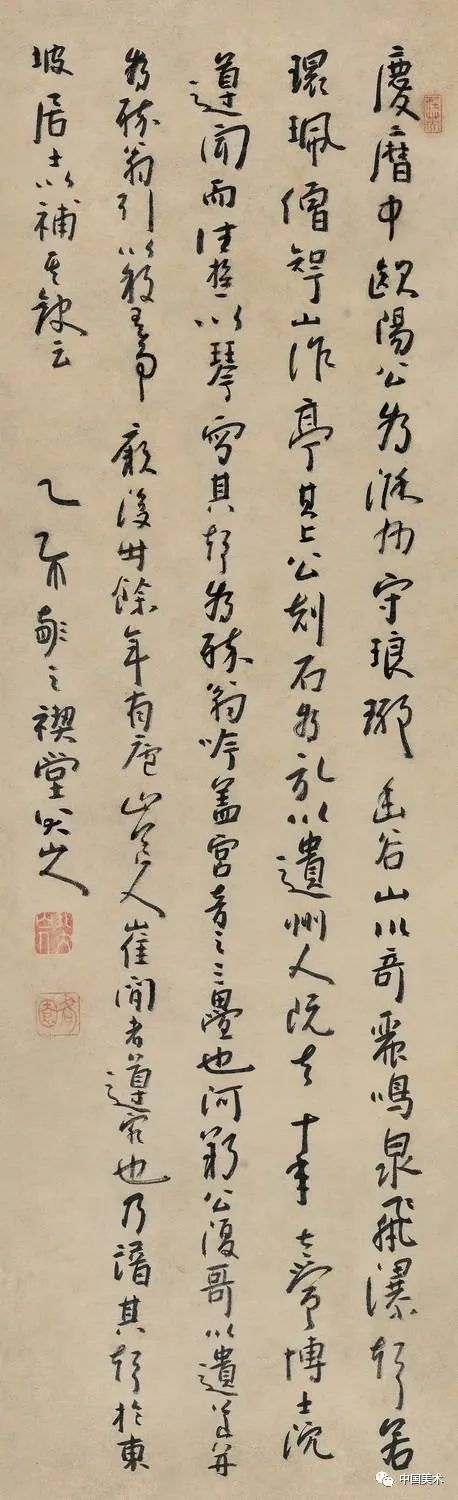 慶曆中歐陽公為滁州守琅琊幽谷山川奇麗鳴泉飛瀑聲若
環珮僧智山作亭其上公刻石為記以遺州人既去十年太常博士沈
遵聞而往遊以琴寫其聲為醉翁吟蓋宮音之三疊也河朔公復歌以遺遵并
為醉翁引以敘其事厥後卅餘年有廬山道人崔閒者遵客也乃譜其聲於東
坡居士以補其缺云 乙 之禊堂八大山人
中国美术